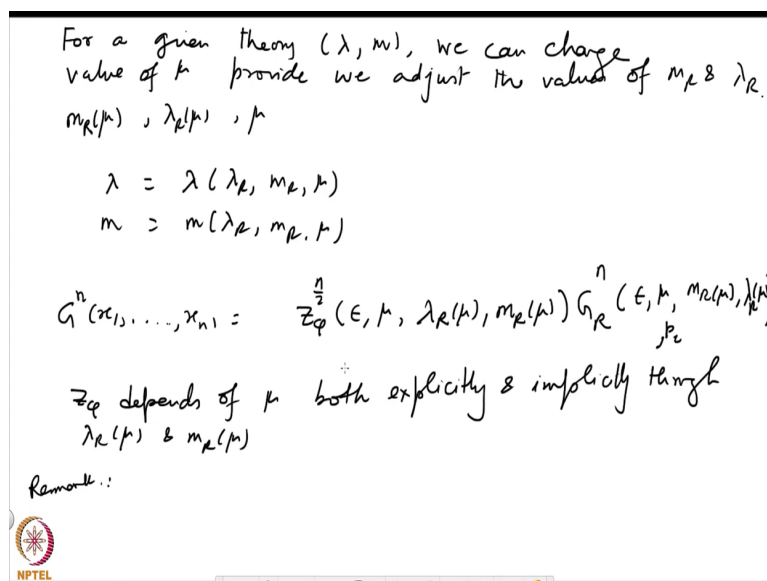 For a given theory (λ, m), we can change
value of μ provide we adjust the values of m_R & λ_R.
m_R(μ), λ_R(μ), μ
λ = λ(λ_R, m_R, μ)
m = m(λ_R, m_R, μ)
G^n(x_1, ...., x_n) = Z_φ^{n/2} (ε, μ, λ_R(μ), m_R(μ)) G_R^n (ε, μ, m_R(μ), λ_R(μ
, p_i
Z_φ depends of μ both explicitly & implicitly through
λ_R(μ) & m_R(μ)
Remark.:
NPTEL